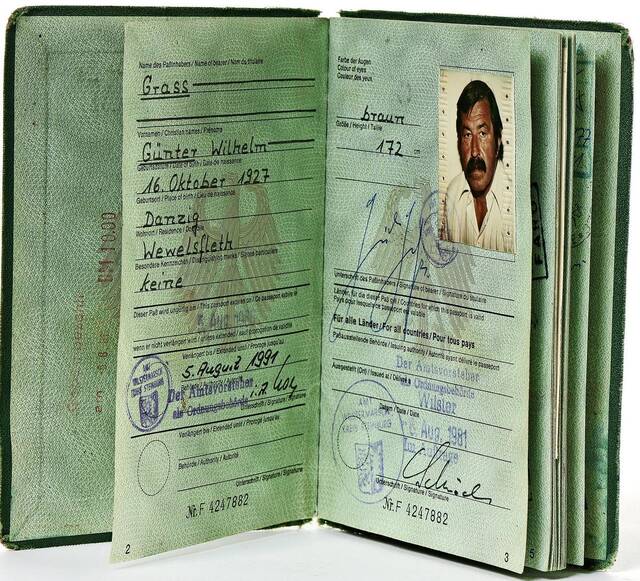 Name des Paßinhabers / Name of bearer / Nom du titulaire
Grass
Vornamen / Christian names / Prénoms
Günter Wilhelm
Geburtsdatum / Date of birth / Date de naissance
16. Oktober 1927
Geburtsort / Place of birth / Lieu de naissance
Danzig
Wohnort / Residence / Domicile
Wewelsfleth
Besondere Kennzeichen / Distinguishing marks / Signes particuliers
keine
Dieser Paß wird ungültig am / This passport expires on / Ce passeport expire le
5. Aug. 1986
wenn er nicht verlängert wird / unless extended / sauf prolongation de validité
Verlängert bis / Extended until / Prolongé jusqu'au
5. August 1991
Der Amtsvorsteher
als Ordnungsbehörde
Unterschrift / Signature / Signature
Verlängert bis / Extended until / Prolongé jusqu'au
Behörde / Authority / Autorité
Unterschrift / Signature / Signature
Nr. F 4247882
2
Farbe der Augen
Colour of eyes
Couleur des yeux
braun
Größe / Height / Taille
172
Unterschrift des Paßinhabers / Signature of bearer / Signature du titulaire
Länder, für die dieser Paß gilt / Countries for which this passport is valid
Pays pour lesquels ce passeport est valable
Für alle Länder / For all countries / Pour tous pays
Paßausstellende Behörde / Issuing authority / Autorité ayant délivré le passeport
Der Amtsvorsteher
als Ordnungsbehörde
Ausgestellt (Ort) / Issued at / Délivré à
Wilster
Datum / Date / Date
6. Aug. 1981
Im Auftrage
Unterschrift / Signature / Signature
Nr. F 4247882
3
5